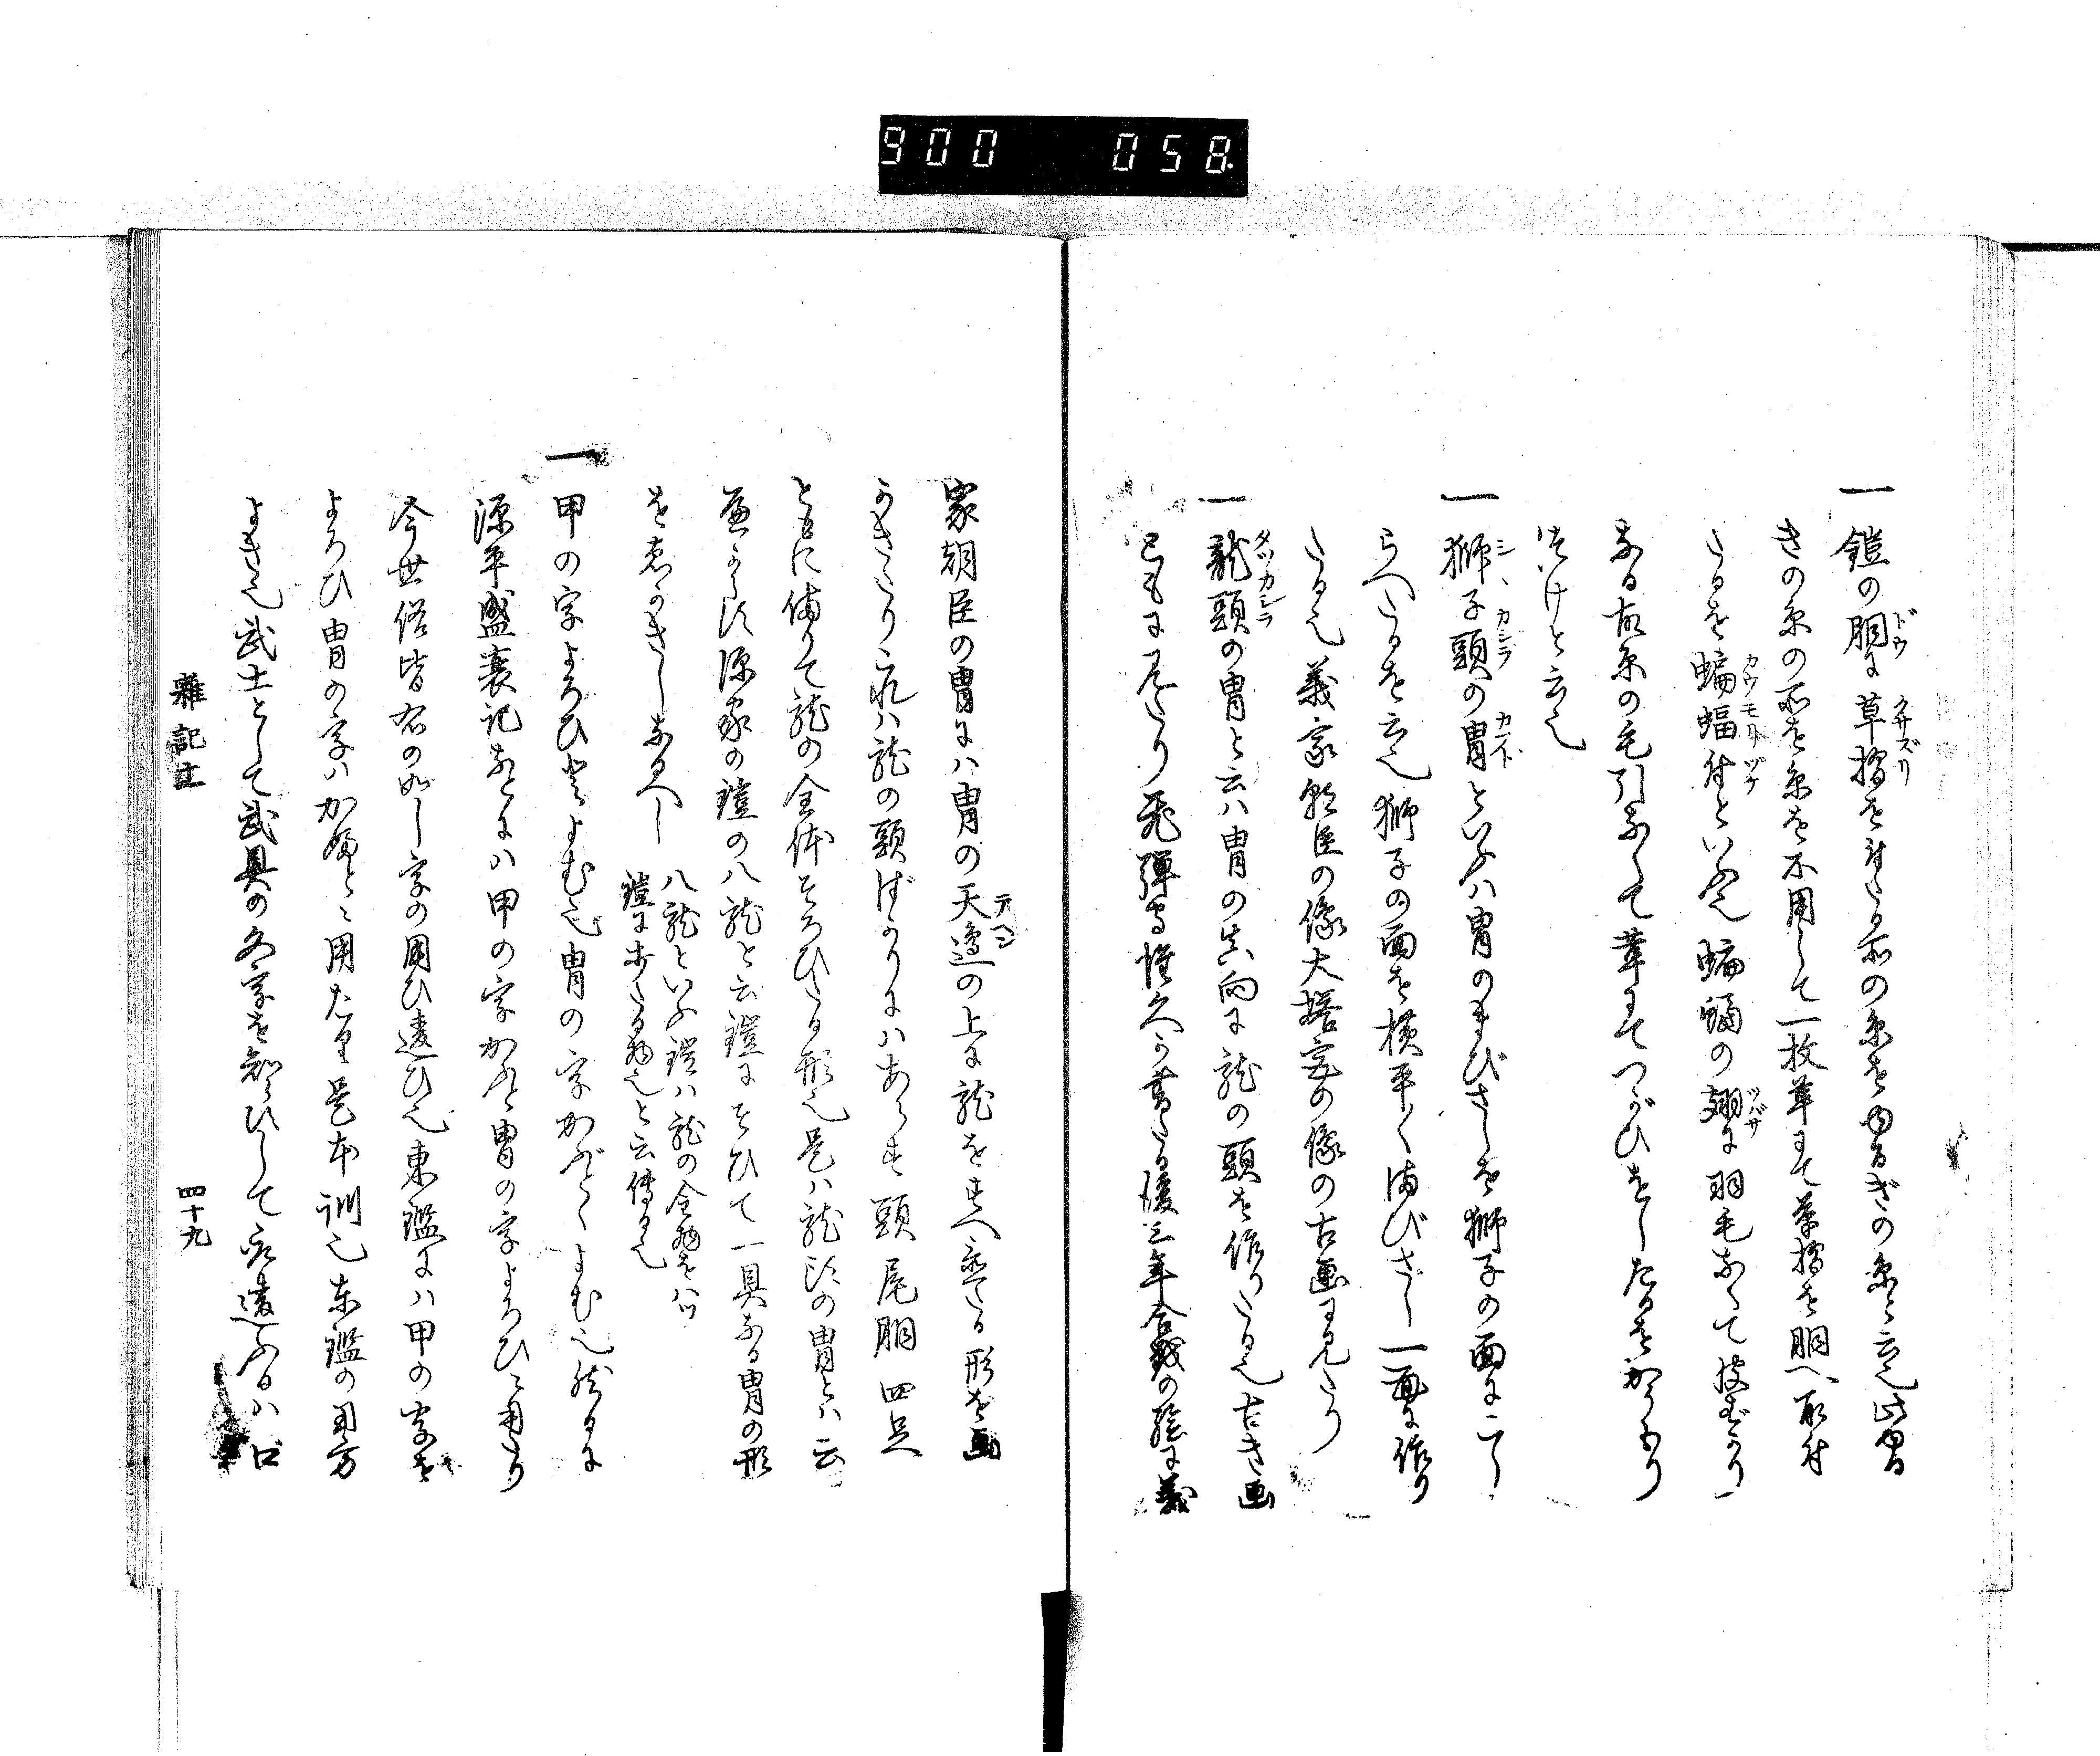 900 058
一 鎧の胴に草摺を付たる所の糸をゆるぎの糸と云也此ゆる
ぎの糸の所を糸を不用して一枚革にて草摺を胴へ取付
たるを蝙蝠付といふ也蝙蝠の翅に羽毛なくて皮ばかり
なる故糸の毛引なくて革にてつがひをしたるをかうふり
付けと云也
一 獅子頭の冑といふハ冑のまびさしを獅子の面にこし
らへたるを云也獅子の面を横平くまびさし一面に作り
たる也義家朝臣の像大塔宮の像の古画に見えたり
一 龍頭の冑と云ハ冑の真向に龍の頭を作りたる也古き画
にも見えたり飛弾守惟久か書たる後三年合戦の絵に義
家朝臣の冑にハ冑の天邊の上に龍をすへ立たる形を画
かきたりこれハ龍の頭ばかりにハあらす頭尾胴四足
ともに備りて龍の全体そろひたる形也是ハ龍頭の冑とハ云
へからす源家の鎧の八龍と云鎧にそひて一具なる冑の形
をゑかきしなるへし 八龍といふ鎧ハ龍の全物を八ツ
鎧に打たる物也と云傳る也
一 甲の字よろひとよむ也冑の字かぶとゝよむ也然るに
源平盛衰記などにハ甲の字かぶとゝ冑の字よろひに用たり
今世俗皆右の如し字の用ひ違ひ也東鑑にハ甲の字を
よろひ冑の字ハかぶとゝ用たり是本訓也東鑑の用方
よき也武士として武具の名字を知らずして取違ふるハ口
雑記十一 四十九
ドウ
クサズリ
カウモリヅケ
ツバサ
シヽカシラ
カブト
タツカシラ
テヘン